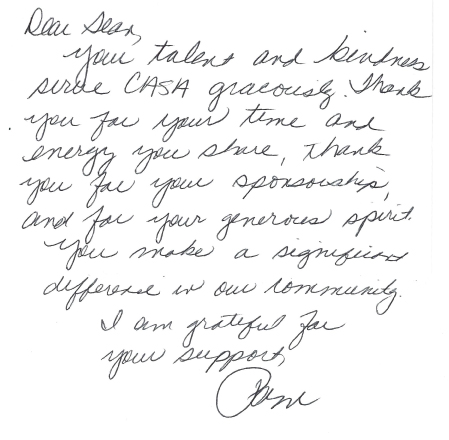 Dear Sean,
your talent and kindness
serve CASA gracously. Thank
you for your time and
energy you share, thank
you for your sponsorship,
and for your generous spirit.
You make a significant
difference in our community.
I am grateful for
your support,